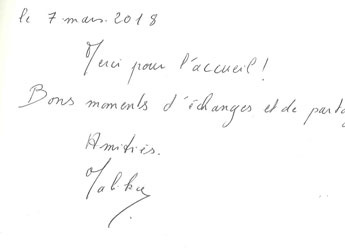 le 7 mars 2018
Merci pour l'accueil !
Bons moments d'échanges et de partag
Amitiés.
Malika